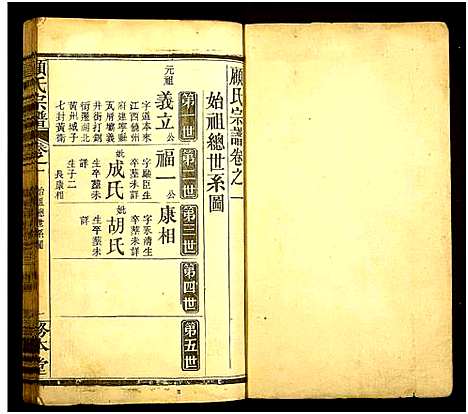 顧氏宗譜卷之一
始祖總世系圖
第一世
第二世
第三世
第四世
第五世
元祖
義立公
字道本來
江西饒州
府建寧縣
瓦屑壩義
井街打銅
街遷湖北
黃州城子
七封黃衛
福一公
字
臣生
卒葬未
詳
妣成氏
生卒葬未
詳
生子二
長康相
康相
字
清生
卒葬未
詳
妣胡氏
生卒葬未
詳
顧氏宗譜
卷之一
始祖總世系圖
本堂